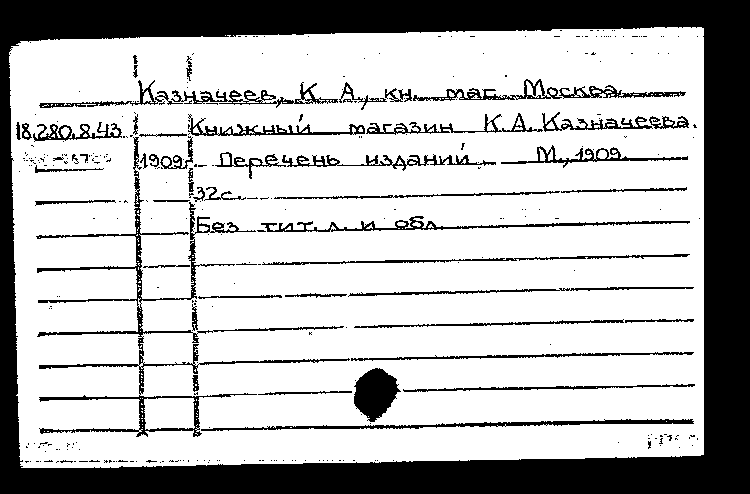 Казначеев, К. А., кн. маг. Москва.
18.280.8.43 Книжный магазин К.А. Казначеева.
1909г. Перечень изданий. М., 1909.
32с.
Без тит. л. и обл.